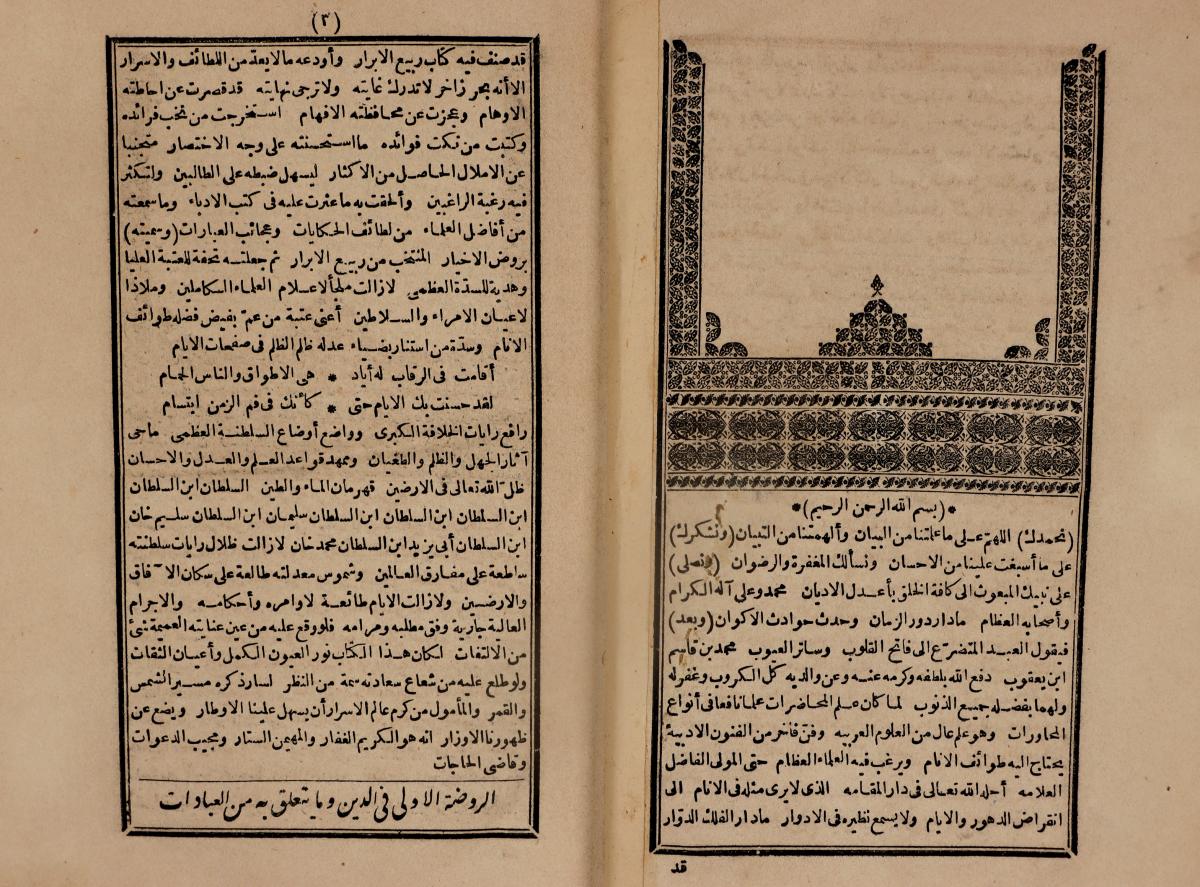 *(بسم الله الرحمن الرحيم)*
(نحمدك) اللهم على ما علمتنا من البيان وألهمتنا من التبيان (ونشكرك)
على ما أسبغت علينا من الاحسان ونسألك المغفرة والرضوان (ونصلى)
على نبيك المبعوث الى كافة الخلق بأعدل الاديان محمد وعلى آله الكرام
وأصحابه العظام مادار دور الزمان وحدث حوادث الاكوان (وبعد)
فيقول العبد المتضرع الى فاتح القلوب وساتر العيوب محمد بن قاسم
ابن يعقوب دفع الله بلطفه وكرمه عنه وعن والديه كل الكروب وغفر له
ولهما بفضله جميع الذنوب لما كان علم المحاضرات علما نافعا فى أنواع
المحاورات وهو علم عال من العلوم العربيه وفن فاخر من الفنون الادبية
يحتاج اليه طوائف الانام ويرغب فيه العلماء العظام حتى المولى الفاضل
العلامه أحله الله تعالى فى دار المقامه الذى لا يرى مثله فى الانام الى
انقراض الدهور والايام ولا يسمع نظيره فى الادوار مادار الفلك الدوار
قد
(٢)
قد صنف فيه كتاب ربيع الابرار وأودعه مالا يعد من اللطائف والاسرار
الا أنه بحر زاخر لا تدرك غايته ولا ترجى نهايته قد قصرت عن احاطته
الاوهام وعجزت عن محافظته الافهام استخرجت من نخب فرائده
وكتبت من نكت فوائده ما استحسنته على وجه الاختصار متجنبا
عن الاملال الحاصل من الاكثار ليسهل ضبطه على الطالبين ولتكثر
فيه رغبة الراغبين وألحقت به ما عثرت عليه فى كتب الادباء وما سمعته
من أفاضل العلماء من لطائف الحكايات وعجائب العبارات (وسميته)
بروض الاخيار المنتخب من ربيع الابرار ثم جعلته تحفة للعتبة العليا
وهدية للسدة العظمى لا زالت ملجأ لاعلام العلماء الكاملين وملاذا
لاعيان الامراء والسلاطين أعنى عتبة من عم بفيض فضله طوائف
الانام وسدة من استنار بضياء عدله ظلم الظلم فى صفحات الايام
أقامت فى الرقاب له أياد * هى الاطواق والناس الحمام
لقد حسنت بك الايام حتى * كأنك فى فم الزمن ابتسام
رافع رايات الخلافة الكبرى وواضع أوضاع السلطنة العظمى ماحى
آثار الجهل والظلم والطغيان وممهد قواعد العلم والعدل والاحسان
ظل الله تعالى فى الارضين قهرمان الماء والطين السلطان ابن السلطان
ابن السلطان ابن السلطان ابن السلطان سليمان ابن السلطان سليم خان
ابن السلطان أبى يزيد ابن السلطان محمد خان لا زالت ظلال رايات سلطنته
ساطعة على مفارق العالمين وشموس معدلته طالعة على سكان الآفاق
والارضين ولا زالت الايام طائعة لاوامره وأحكامه والاجرام
العالية جارية وفق مطلبه ومرامه فلو وقع عليه من عين عنايته العميمة شئ
من الالتفات لكان هذا الكتاب نور العيون الكمل وأعيان الثقات
ولو طلع عليه من شعاع سعادته سمة من النظر لسار ذكره مسير الشمس
والقمر والمأمول من كرم عالم الاسرار أن يسهل علينا الاوطار ويضع عن
ظهورنا الاوزار انه هو الكريم الغفار والمهيمن الستار ومجيب الدعوات
وقاضى الحاجات
الروضة الاولى فى الدين وما يتعلق به من العبادات